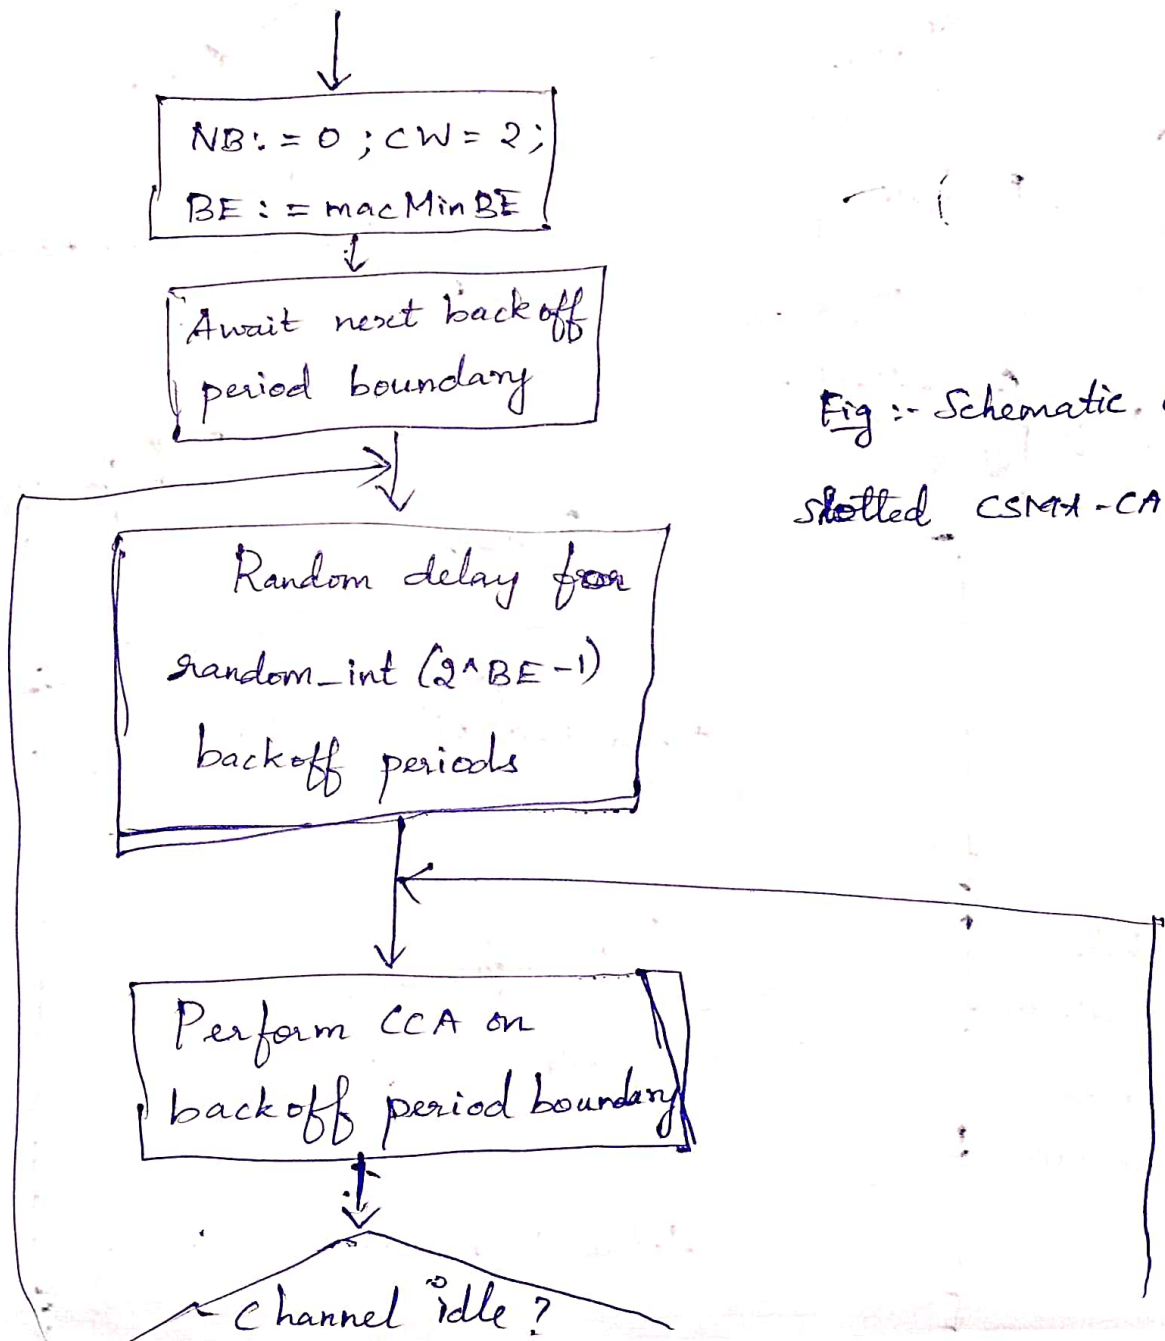 NB := 0 ; CW = 2;
BE := macMinBE
Await next backoff
period boundary
Fig :- Schematic
slotted CSMA-CA
Random delay for
random_int (2^BE-1)
backoff periods
Perform CCA on
backoff period boundary
Channel idle ?